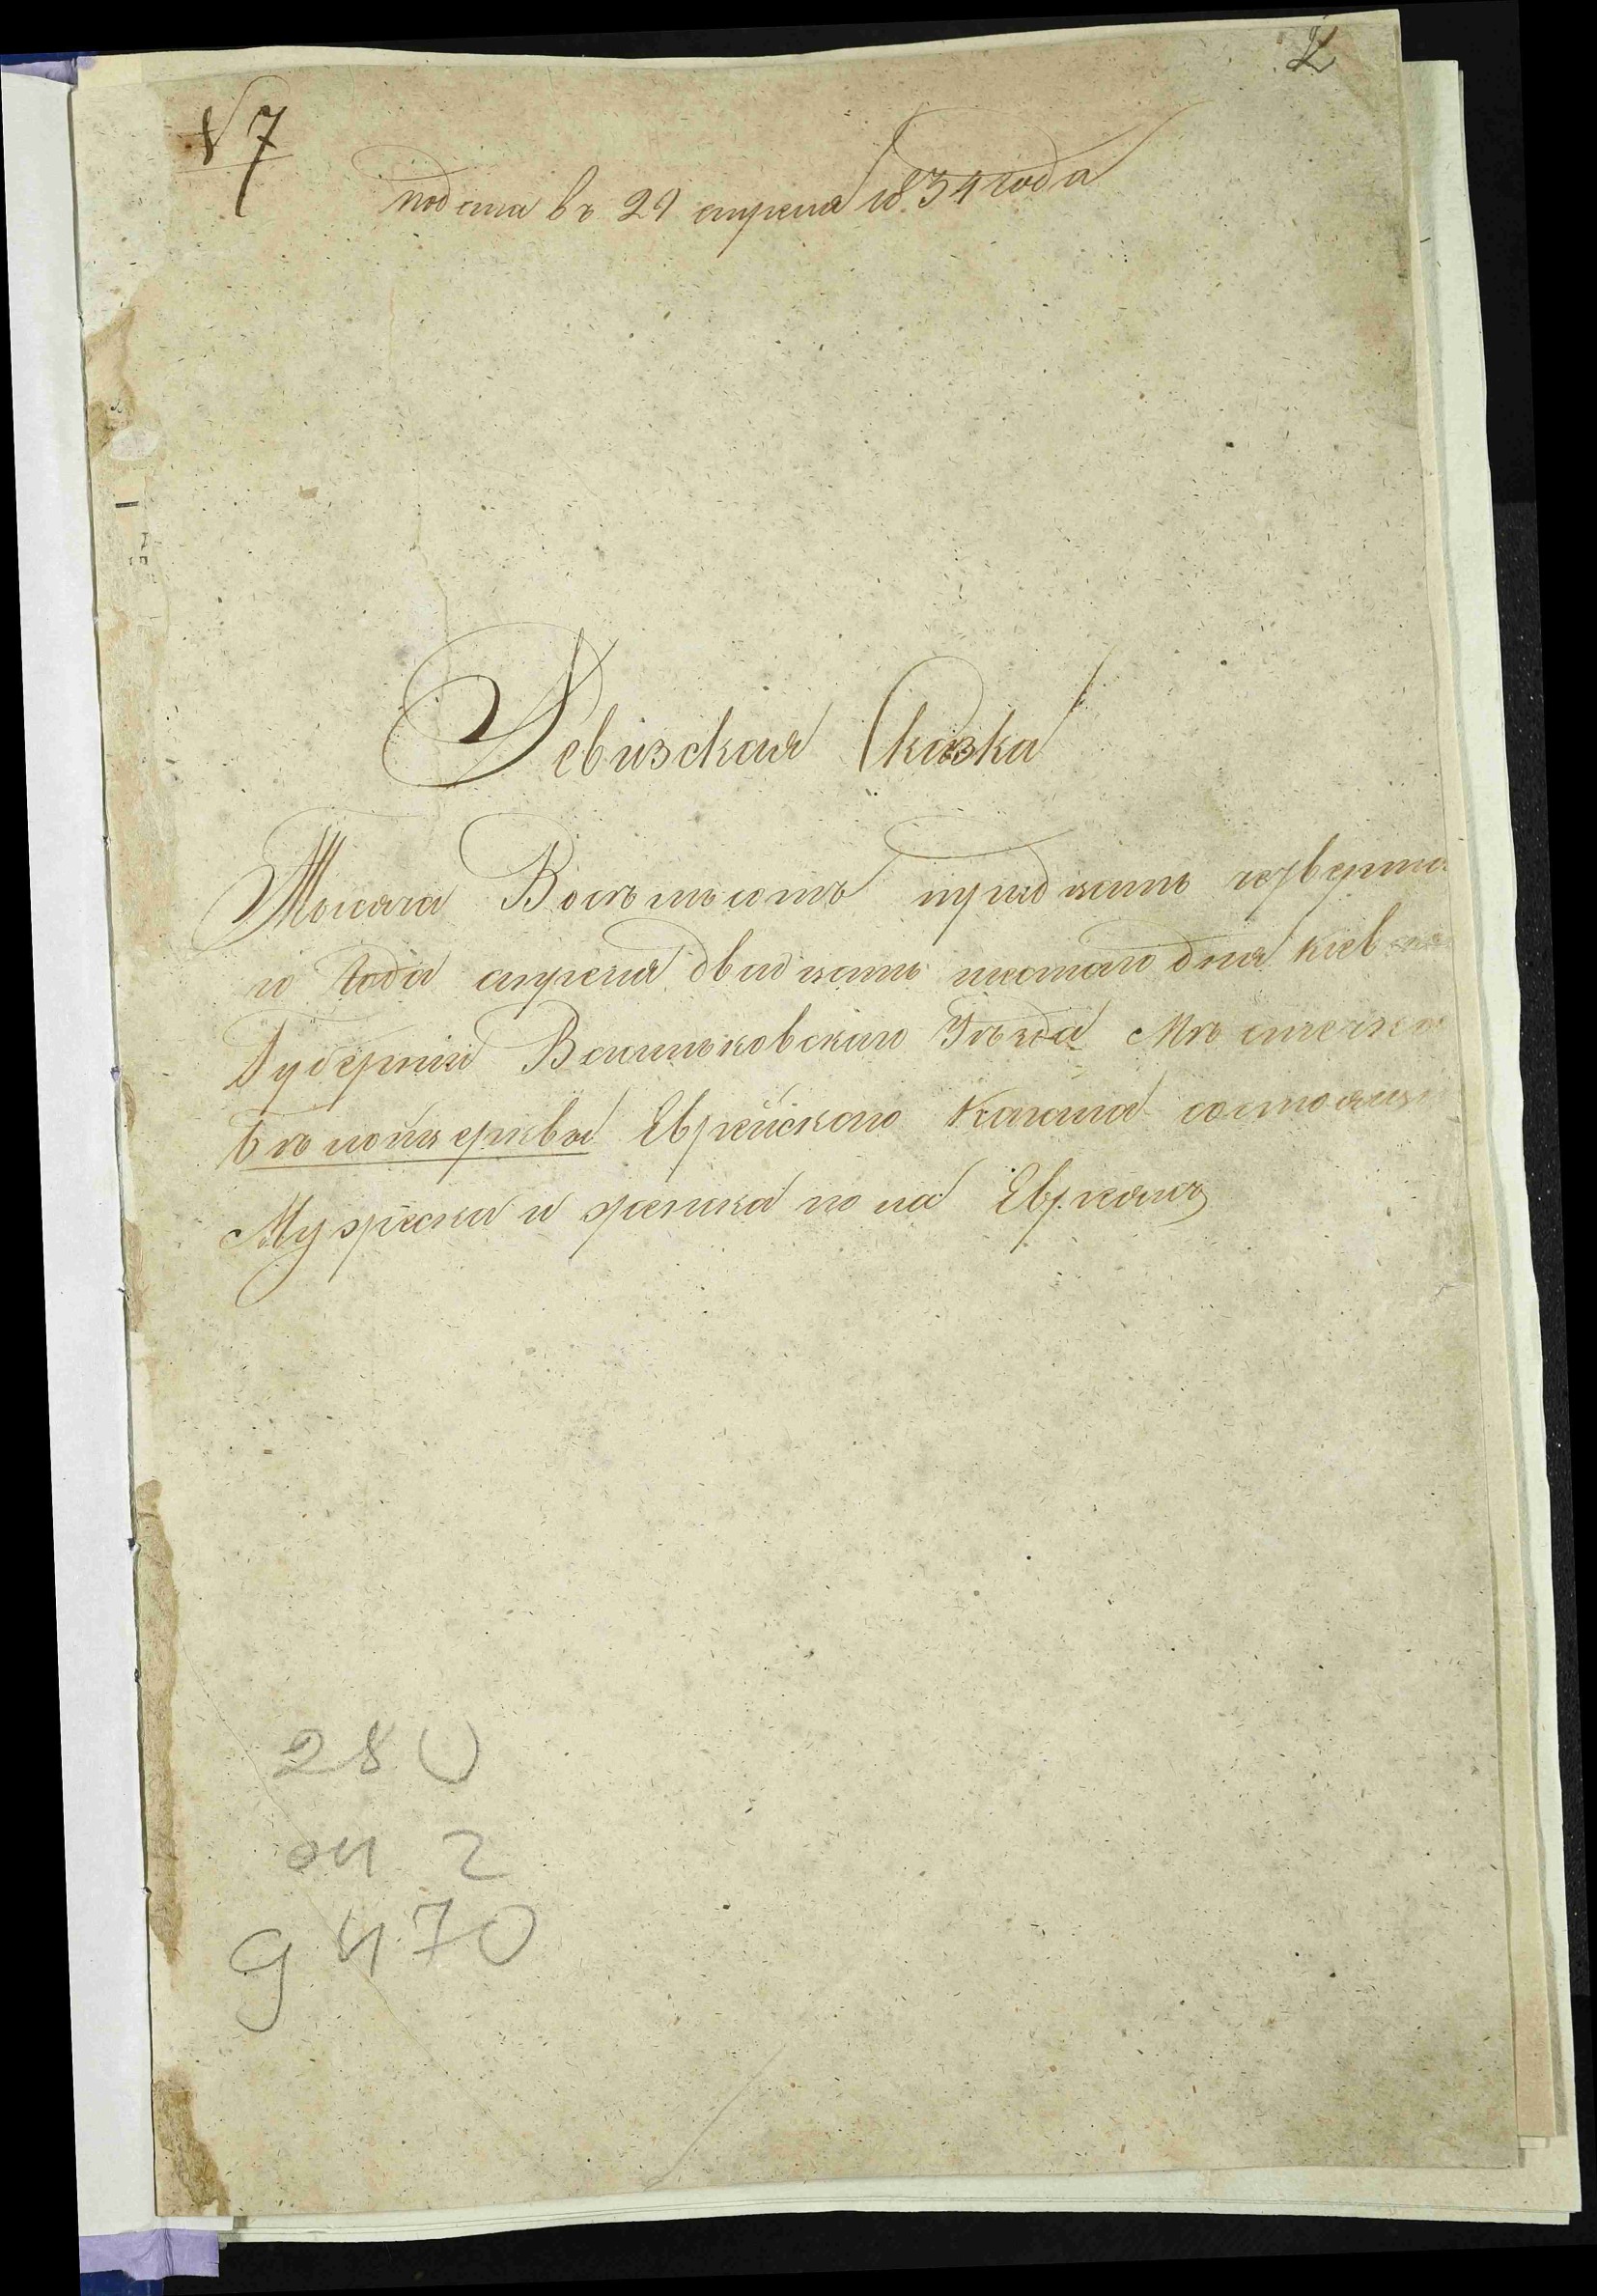 2
№ 7
подана въ 29 апреля 1834 года
Ревизская Сказка
Тысяча Восемьсотъ тридцать четверта
го Года апреля двадцать шестаго дня Киевской
Губернии Васильковского Уезда Местечка
Белойцеркви Еврейского Кагала состоящих
Мужеска и женска пола Евреяхъ
280
оп 2
g 470